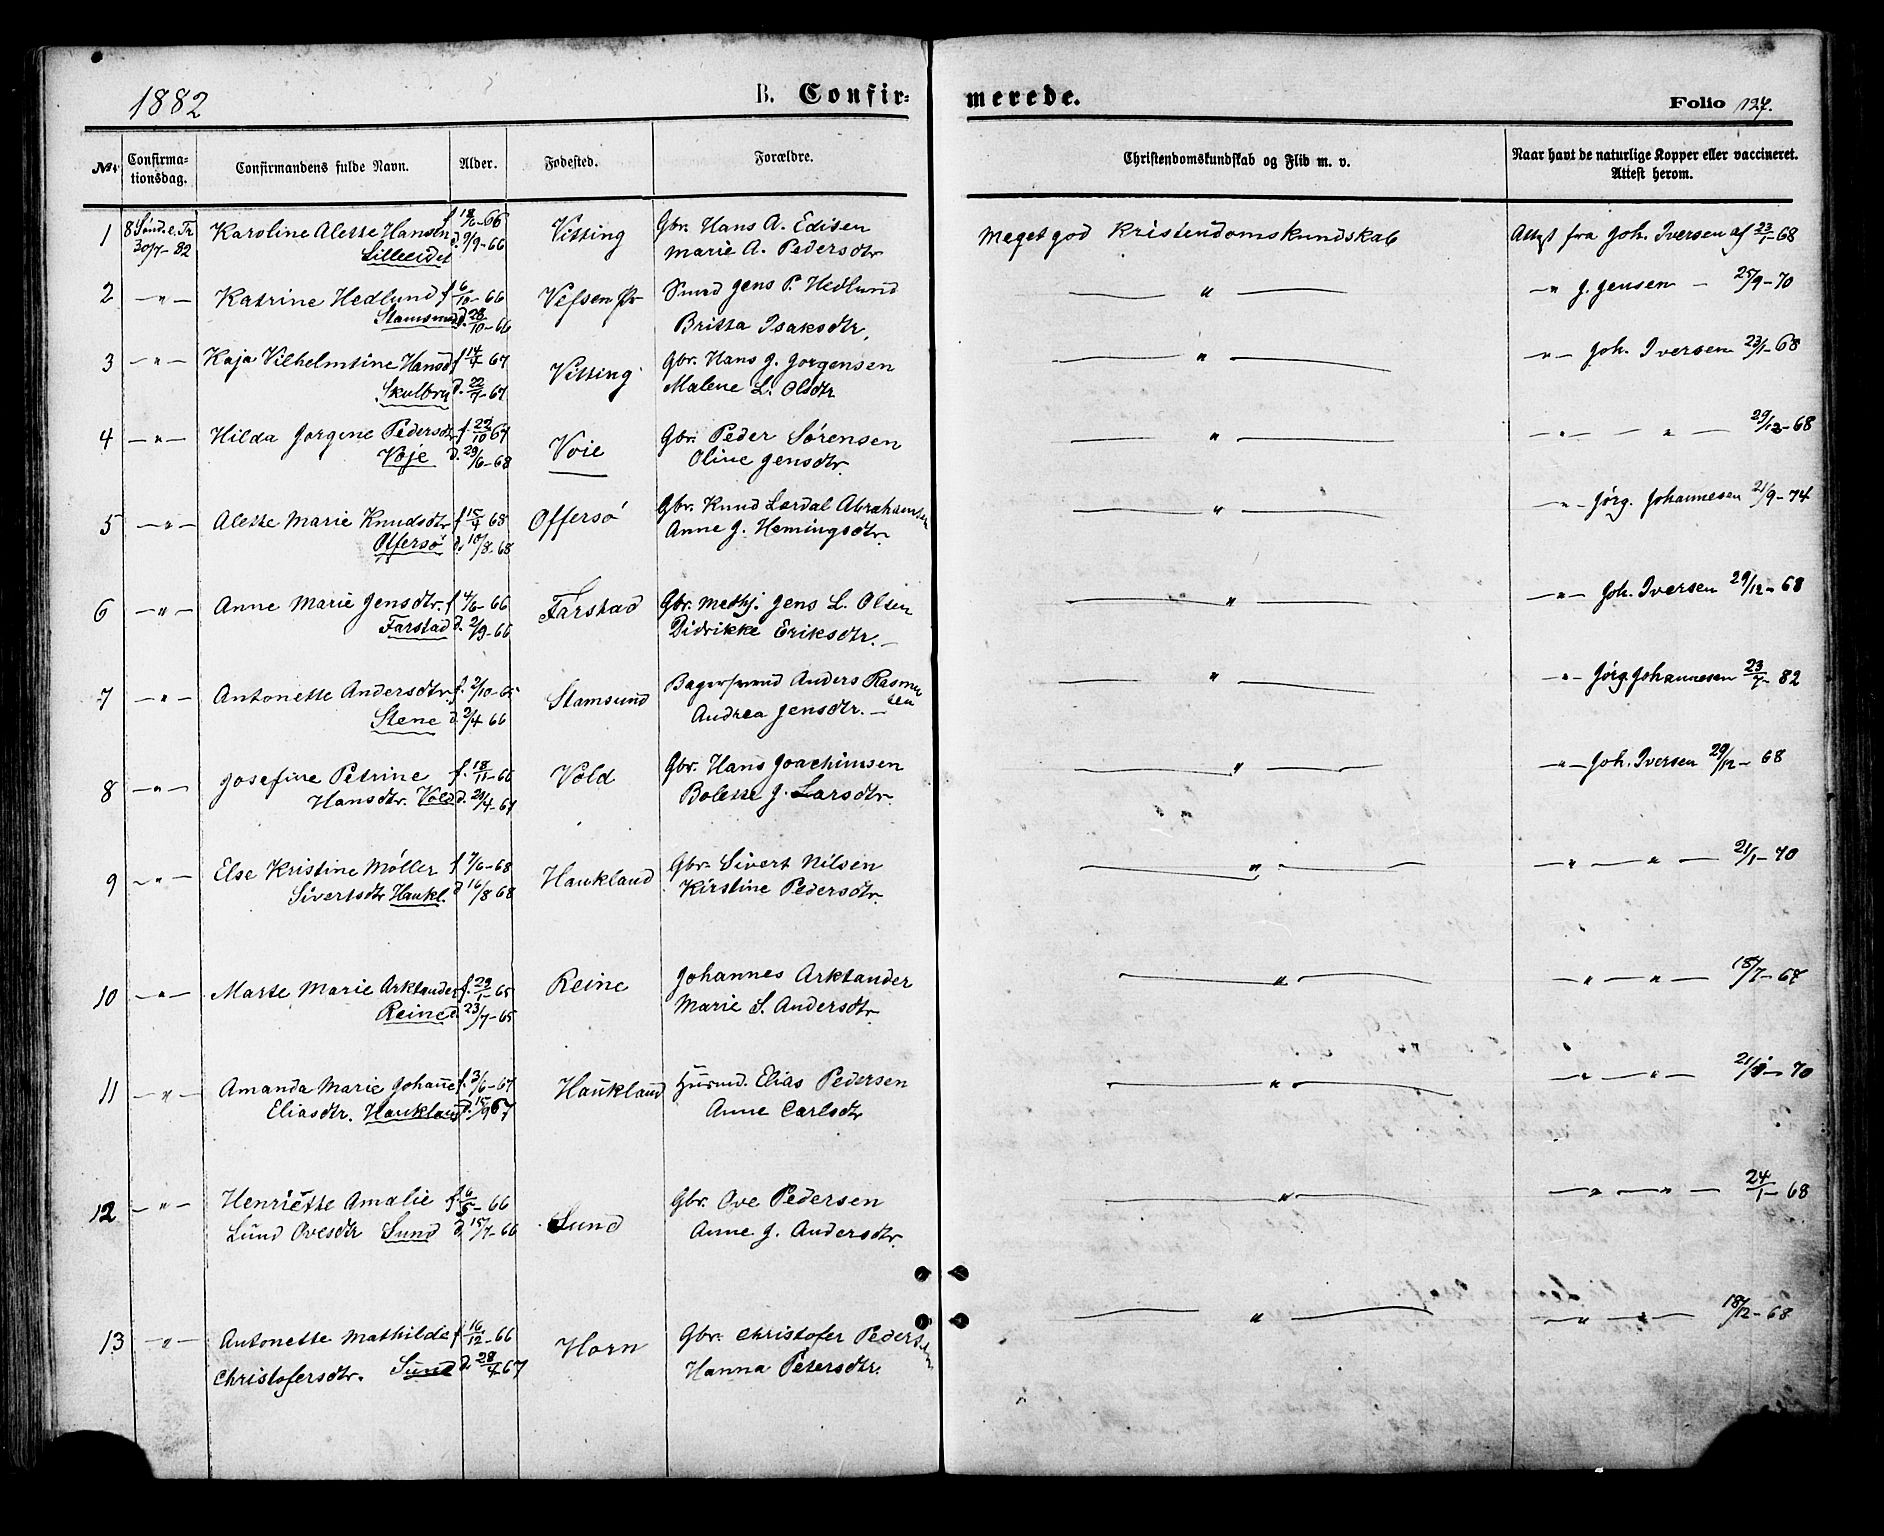 1882 B. Confir- merede. Folio 127.
No. Confirma- tionsdag. Confirmandens fulde Navn. Alder. Fødested. Forældre. Christendomskundskab og Flid m. v. Naar havt de naturlige Kopper eller vaccineret. Attest herom.
1 8 Sønd. e. Tr Karoline Alette Hansen f 18/6-66 Vitting Gbr. Hans A. Edisen Meget god Kristendomskundskab Attest fra Joh. Iversen af 23/1-68
30/7-82 Lilleeidet d. 9/9-66 Marie A. Pedersdtr
2 —"— Katrine Hedlund f 6/10-66 Vefsen Smed Jens P. Hedlund — " — —"— J. Jensen — 25/9-70
Stamsund d. 28/10-66 Britta Isaksdtr.
3 —"— Kaja Vilhelmtine Hansd f 14/4-67 Vitting Gbr. Hans J. Jorgensen — " — —"— Joh. Iversen 23/1-68
Skulbru d. 22/7-67 Malene L. Olsdtr
4 —"— Hilda Jorgine Pedersdtr f. 22/10 67 Voie Gbr. Peder Sørensen — " — —"— — " — 29/12-68
Voje d. 29/6-68 Oline Jensdtr.
5 —"— Alette Marie Knudsdtr f 15/4 68 Offersø Gbr. Knud Lordal Abrahamsen — " — —"— Jørg. Johannesen 21/9-74
Offersø d. 10/8-68 Anne J. Hemingsdtr.
6 —"— Anne Marie Jensdtr. f 4/6-66 Farstad Gbr. Methj. Jens L. Olsen — " — —"— Joh. Iversen 29/12-68
Farstad d. 2/9-66 Didrikke Eriksdtr.—
7 —"— Antonette Andersdtr. f. 2/10-65 Stamsund Bagersvend Anders Rasmu — " — —"— Jørg. Johannesen 23/7-82
Stene d. 2/4 66 Andrea Jensdtr.— sen
8 —"— Josefine Petrine f. 18/11-66 Vold Gbr. Hans Joachimsen — " — —"— Joh. Iversen 29/12-68
Hansdtr. Vold d. 28/4-67 Bolette J. Larsdtr.
9 —"— Else Kristine Møller f 7/6-68 Haukland Gbr. Sivert Nilsen — " — —"— — " — 21/1-70
Sivertsdtr Haukl. d 16/8 68 Kirstine Pedersdtr.
10 —"— Marte Marie Arktander f. 29/1-65 Reine Johannes Arktander — " — —"— — " — 18/7-67
Reine d. 23/7-65 Marie S. Andersdtr.
11 —"— Amanda Marie Johanne f. 3/6-67 Haukland Husmd. Elias Pedersen — " — —"— — " — 21/1-70
Eliasdtr. Haukland d. 15/9 67 Anne Carlsdtr
12 —"— Henriette Amalie f. 6/5-66 Sund Gbr. Ove Pedersen — " — —"— — " — 24/1-68
Lund Ovesdtr Sund d 15/7-66 Anne J. Andersdtr.
13 —"— Antonette Mathilde f 16/12-66 Horn Gbr. Christofer Pedersen — " — —"— — " — 18/12-68
Christofersdtr. Sund d. 28/4-67 Hanna Petersdtr.